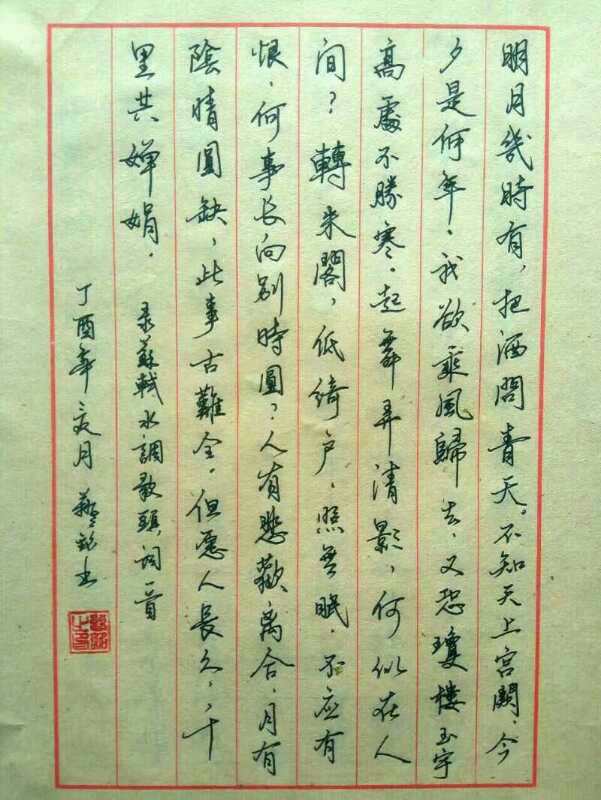 明月幾時有，把酒問青天。不知天上宮闕，今
夕是何年。我欲乘風歸去，又恐瓊樓玉宇
高處不勝寒。起舞弄清影，何似在人
间？轉朱閣，低綺户，照無眠。不应有
恨，何事长向别時圓？人有悲歡离合，月有
陰晴圓缺，此事古難全。但愿人長久，千
里共嬋娟。
录蘇軾水調歌頭詞一首
丁酉年 月 書